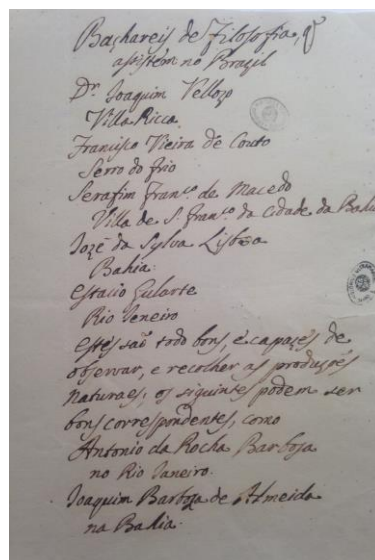 Bachareis de Filosofia, q̃
assistem no Brazil
Dr. Joaquim Vellozo
Villa Ricca
Francisco Vieira de Couto
Serro do frio
Serafim Franco. de Macedo
Villa de S. Franco. da Cidade da Bahia
Jozé da Sylva Lisboa
Bahia.
Estacio Gularte
Rio Jeneiro
Estes saõ todo bons, e capazes de
observar, e recolher as producções
naturaes; os siguintes podem ser
bons correspondentes, como
Antonio da Rocha Barboza
no Rio Janeiro.
Joaquim Barboza de Almeida
na Bahia.